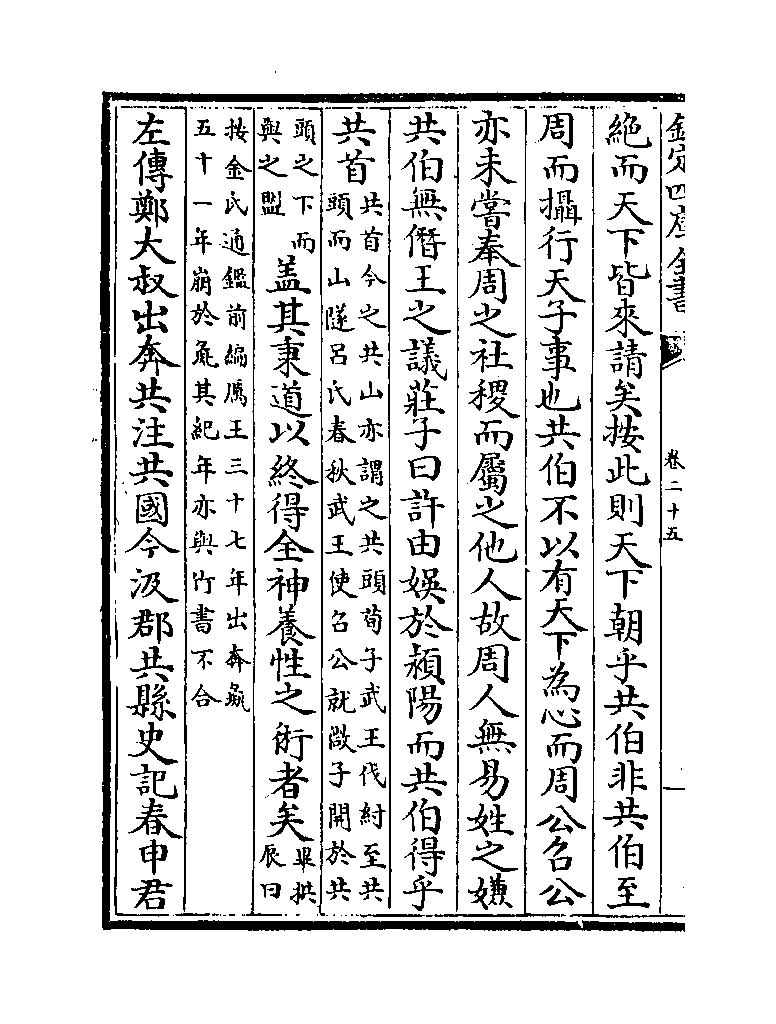 欽定四庫全書 卷二十五 一
絶而天下皆來請矣按此則天下朝乎共伯非共伯至
周而攝行天子事也共伯不以有天下為心而周公召公
亦未嘗奉周之社稷而屬之他人故周人無易姓之嫌
共伯無僭王之議莊子曰許由娛於潁陽而共伯得乎
共首
共首今之共山亦謂之共頭荀子武王伐紂至共
頭而山隧呂氏春秋武王使召公就微子開於共
頭之下而
與之盟
盖其秉道以終得全神養性之術者矣
畢拱
辰曰
按金氏通鑑前編厲王三十七年出奔彘
五十一年崩於彘其紀年亦與竹書不合
左傳鄭大叔出奔共注共國今汲郡共縣史記春申君